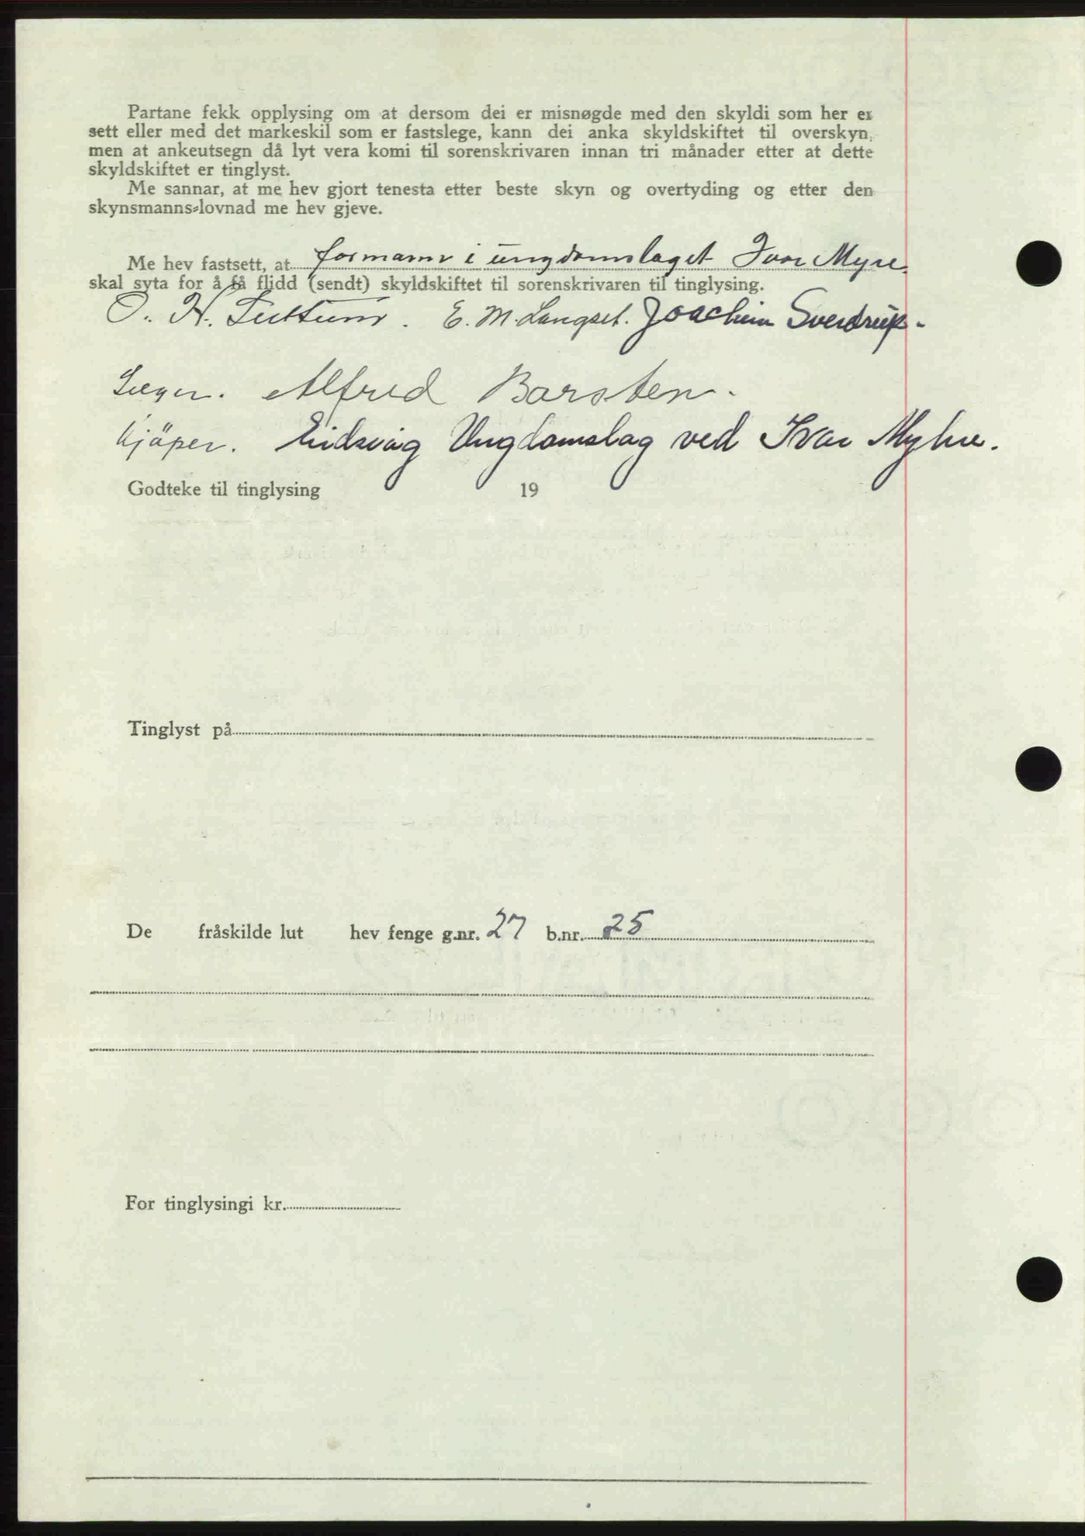 Partane fekk opplysing om at dersom dei er misnøgde med den skyldi som her er
sett eller med det markeskil som er fastslege, kann dei anka skyldskiftet til overskyn,
men at ankeutsegn då lyt vera komi til sorenskrivaren innan tri månader etter at dette
skyldskiftet er tinglyst.
Me sannar, at me hev gjort tenesta etter beste skyn og overtyding og etter den
skynsmanns-lovnad me hev gjeve.
Me hev fastsett, at formann i ungdomslaget Ivar Myre
skal syta for å få flidd (sendt) skyldskiftet til sorenskrivaren til tinglysing.
O. H. E. M. Langset. Joachim Sverdrup.
Selger. Alfred Barsten.
Kjöper. Eidsvåg Ungdomslag ved Ivar Myhre.
Godteke til tinglysing 19
Tinglyst på
De fråskilde lut hev fenge g.nr. 27 b.nr. 25
For tinglysingi kr.